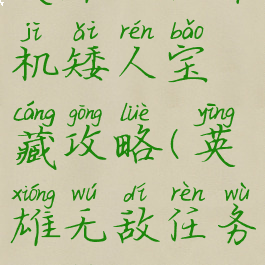 jī ǎi rén bǎo
机矮人宝
cáng gōng lüè yīng
藏攻略(英
xióng wú dí rèn wù
雄无敌任务